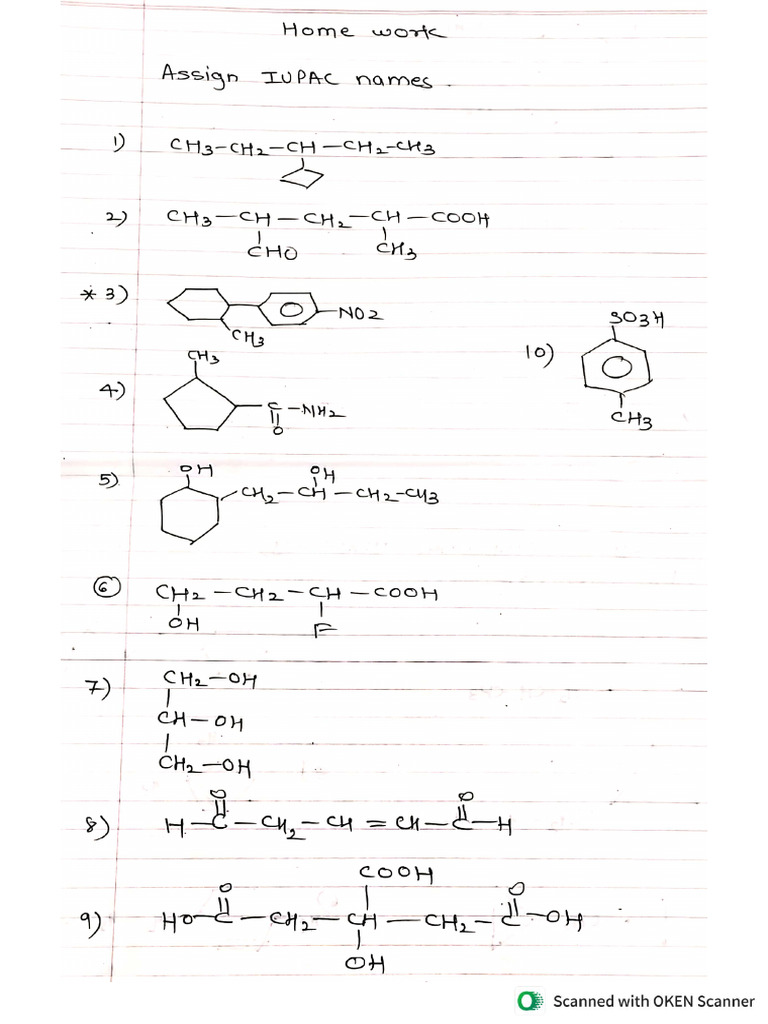 Home work
Assign IUPAC names.
1) CH3-CH2-CH-CH2-CH3
2) CH3-CH-CH2-CH-COOH
CHO CH3
* 3) NO2
CH3
4) CH3
C-NH2
O
5) OH OH
CH2-CH-CH2-CH3
6 CH2-CH2-CH-COOH
OH F
7) CH2-OH
CH-OH
CH2-OH
8) O O
H-C-CH2-CH=CH-C-H
9) COOH
O O
HO-C-CH2-CH-CH2-C-OH
OH
10) SO3H
CH3
Scanned with OKEN Scanner